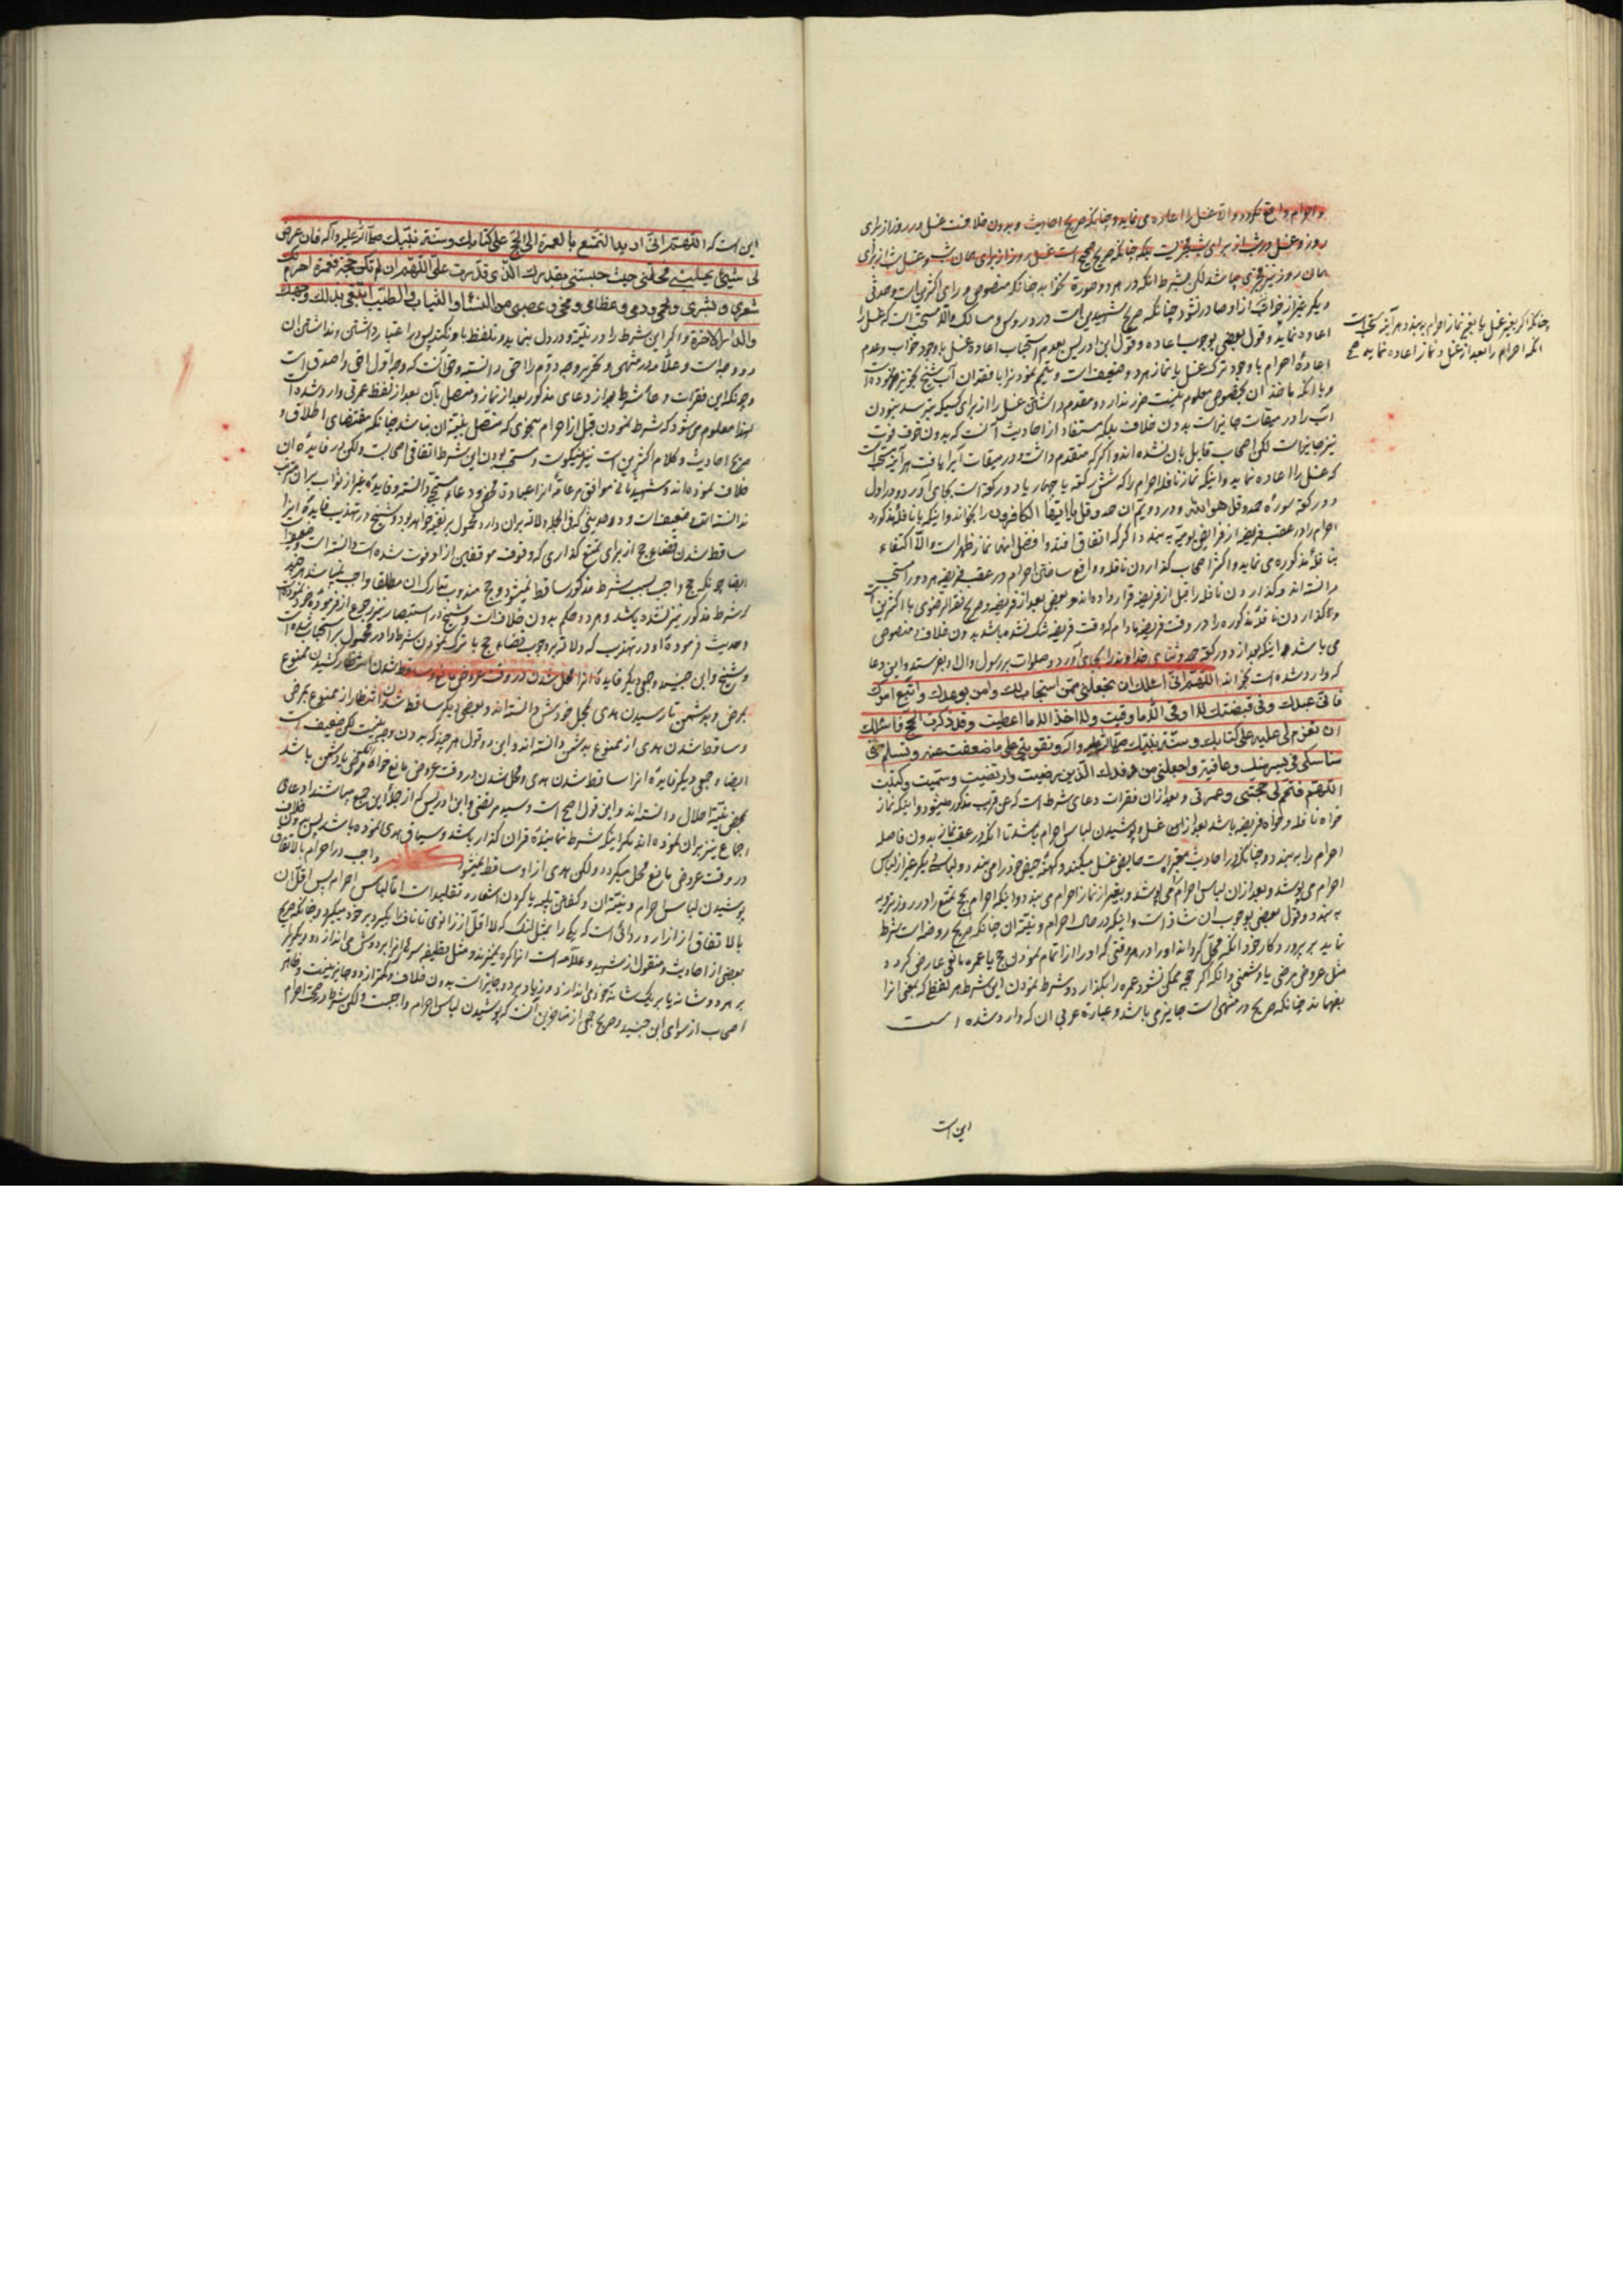 و احرام واقع نکردد والا غسل را اعاده می نماید و چنانکه صریح احادیث و بدون خلافست غسل در روز از برای
روز و غسل در شب از برای شب مجزیست بلکه چنانکه صریح صحیح است غسل روز از برای همان شب و غسل شب از برای
همان روز نیز مجزی می باشد لکن بشرط آنکه در هر دو صورة نخوابد چنانکه منصوص و رای اکثرین است و حدثی
دیکر غیر از خواب از او صادر نشود چنانکه صریح شهیدین است در دروس و مسالک والا مستحب است که غسل را
اعاده نماید و قول بعضی بوجوب اعاده و قول ابن ادریس بعدم استحباب اعاده غسل با وجود خواب و عدم
اعادهٔ احرام با وجود ترک غسل یا نماز هر دو ضعیف است و تیمم نمودنرا با فقدان آب شیخ تجویز فرموده است
و با آنکه ماخذ آن بخصوص معلوم نیست ضرر ندارد و مقدم داشتن غسل را از برای کسیکه بترسد نبودن
آب را در میقات جایز است بدون خلاف بلکه مستفاد از احادیث آنست که بدون خوف فوت
نیز جایز است لکن اصحاب قایل بان نشده اند و اکر که متقدم داشت و در میقات آبرا یافت هر آینه مستحب است
که غسل را اعاده نماید و اینکه نماز نافله احرام را که شش رکعة یا چهار یا دو رکعة است بجا می آورد و در اول
دو رکعة سورهٔ حمد و قل هو الله و در دویم آن حمد و قل یا ایها الکافرون را بخواند و اینکه با نافلهٔ مذکوره
احرام را در عقب فریضه از فرایض یومیّه به بندد اکر که اتفاق افتد و افضل اینها نماز ظهر است والا اکتفاء
بنافلهٔ مذکوره می نماید و اکثر اصحاب کذاردن نافله و واقع ساختن احرام در عقب فریضه هر دو را مستحب
دانسته اند و کذاردن نافله را قبل از فریضه قرار داده اند و بعضی بعد از فریضه و صریح فقه الرضوی با اکثرین است
و کذاردن نافلهٔ مذکوره را در وقت فریضه مادام که وقت فریضه تنک نشده باشد بدون خلاف و منصوص
می باشد و اینکه بعد از دو رکعة حمد و ثنای خداوند را بجای آورد و صلوات بر رسول و آل او بفرستد و این دعا
که وارد شده است بخواند اللهم انی اسئلک ان تجعلنی ممن استجاب لک و امن بوعدک و اتبع امرک
فانی عبدک و فی قبضتک لا اوقی الا ما وقیت ولا اخذ الا ما اعطیت و قد ذکرت الحج فاسئلک
ان تعزم لی علیه علی کتابک و سنة نبیک صلی الله علیه و آله و تقوینی علی ما ضعفت عنه و تسلم منی
مناسکی فی یسر منک و عافیة واجعلنی من وفدک الذین رضیت وارتضیت و سمیت و کتبت
اللهم فتمم لی حجتی و عمرتی و بعد از آن فقرات دعای شرط است که عن قریب مذکور میشود و اینکه نماز
خواه نافله و خواه فریضه باشد بعد از آن غسل و پوشیدن لباس احرام باشد تا آنکه در عقب نماز بدون فاصله
احرام را به بندد و چنانکه در احادیث معتبر است حایض غسل میکند و کهنهٔ حیض خود را می بندد و لباسی دیکر غیر از لباس
احرام می پوشد و بعد از آن لباس احرام می پوشد و بغیر از نماز احرام می بندد و اینکه احرام حج تمتع را در روز ترویه
به بندد و قول بعضی بوجوب آن شاذ است و اینکه در حال احرام و نیّة آن چنانکه صریح روضه است شرط
نماید بر پرورد کار خود آنکه محل کرداند او را در هر وقتی که او را از تمام نمودن حج یا عمره مانعی عارض کردد
مثل عروض مرضی یا دشمنی و آنکه اکر حجی ممکن نشود عمره را بکذارد و شرط نمودن این شرط هر لفظی که معنی آنرا
بفهماند چنانکه صریح در منتهی است جایز می باشد و عبارة عربی آن که وارد شده است
این است
چنانکه اکر بغیر غسل یا بغیر نماز احرام به بندد هر آینه مستحب است
آنکه احرام را بعد از غسل و نماز اعاده نماید صح
این است که اللهم انی ارید التمتع بالعمرة الی الحج علی کتابک و سنة نبیک صلی الله علیه و آله فان عرض
لی شیئ یحبسنی فحلنی حیث حبستنی بقدرک الذی قدرت علی اللهم ان لم تکن حجة فعمرة احرم لک
شعری و بشری و لحمی و دمی و عظامی و مخی و عصبی من النساء و الثیاب و الطیب ابتغی بذلک وجهک
والدار الاخرة و اکر این شرط را در نیّة و در دل بنماید و تلفظ باو نکند پس در اعتبار داشتن و نداشتن آن
دو وجه است و علامه در منتهی و تحریر وجه دوم را احق دانسته و حق آنست که وجه اول احق و اصدق است
و چونکه این فقرات دعا شرط بعد از دعای مذکور بعد از نماز و متصل بآن بعد از لفظ عمرتی وارد شده است
لهذا معلوم می شود که شرط نمودن قبل از احرام بنحوی که متصل بنیة آن نباشد چنانکه مقتضای اطلاق و
صریح احادیث و کلام اکثرین است نیز نیکوست و مستحب بودن این شرط اتفاقی اصحابست ولکن در فایدهٔ آن
خلاف نموده اند
ساقط شدن قضاء حج از برای تمتع کذاری که وقوف موقفین از او فوت شده است دانسته است
ایضا چونکه حج واجب بسبب شرط مذکور ساقط نمیشود و حج مندوب
که شرط مذکور نیز نشده باشد و هر دو حکم بدون خلافست و شیخ در استبصار نیز رجوع از فرمودهٔ خود نموده است
و حدیث فرمودهٔ او در تهذیب که دلالة بر وجوب قضاء حج با ترک نمودن شرط دارد محمول بر استحباب شده است
و شیخ و ابن جنید و جمعی دیکر فایدهٔ آنرا محل شدن در وقت عروض مانع و ساقط شدن انتظار کشیدن ممنوع
بمرض و بدشمن تا رسیدن هدی بمحل خودش دانسته اند و بعضی دیکر ساقط شدن انتظار از ممنوع بمرض
و ساقط شدن هدی از ممنوع بدشمن دانسته اند و این دو قول هر چند که بدون وجه نیست لکن ضعیف است
ایضا و جمعی دیکر فایدهٔ آنرا ساقط شدن هدی و محل شدن در وقت عروض مانع خواه مرض یا دشمن باشد
بمحض نیّة احلال دانسته اند و این قول اصح است و سید مرتضی و ابن ادریس که از جملهٔ این جمع میباشند ادعای
اجماع نیز بر آن نموده اند مکر اینکه شرط نمایندهٔ قران کذار باشد و سیاق هدی نموده باشد پس
در وقت عروض مانع محل میکردد ولکن هدی از او ساقط نمیشود واجب در احرام بالاتفاق
پوشیدن لباس احرام و نیّة آن و کفتن تلبیه یا کردن اشعار و تقلید است اما لباس احرام پس اقل آن
بالاتفاق از ازار و ردائی است که یکی را مثل لنک که لااقل از زانوی تا ناف را بکیرد بر خود میکیرد و چنانکه صریح
بعضی از احادیث و منقول از شهید و علامه است آنرا کره نمیزند و مثل قطیفه سر آنرا بر دوش می اندازد و دیکر را
بر هر دو شانه یا بر یک شانه خود می اندازد و زیاد بر دو جایز است بدون خلاف و کمتر از دو جایز نیست و ظاهر
اصحاب از سوای ابن جنید و صریح جمعی از متأخرین آنست که پوشیدن لباس احرام واجبست ولکن شرط در صحت احرام